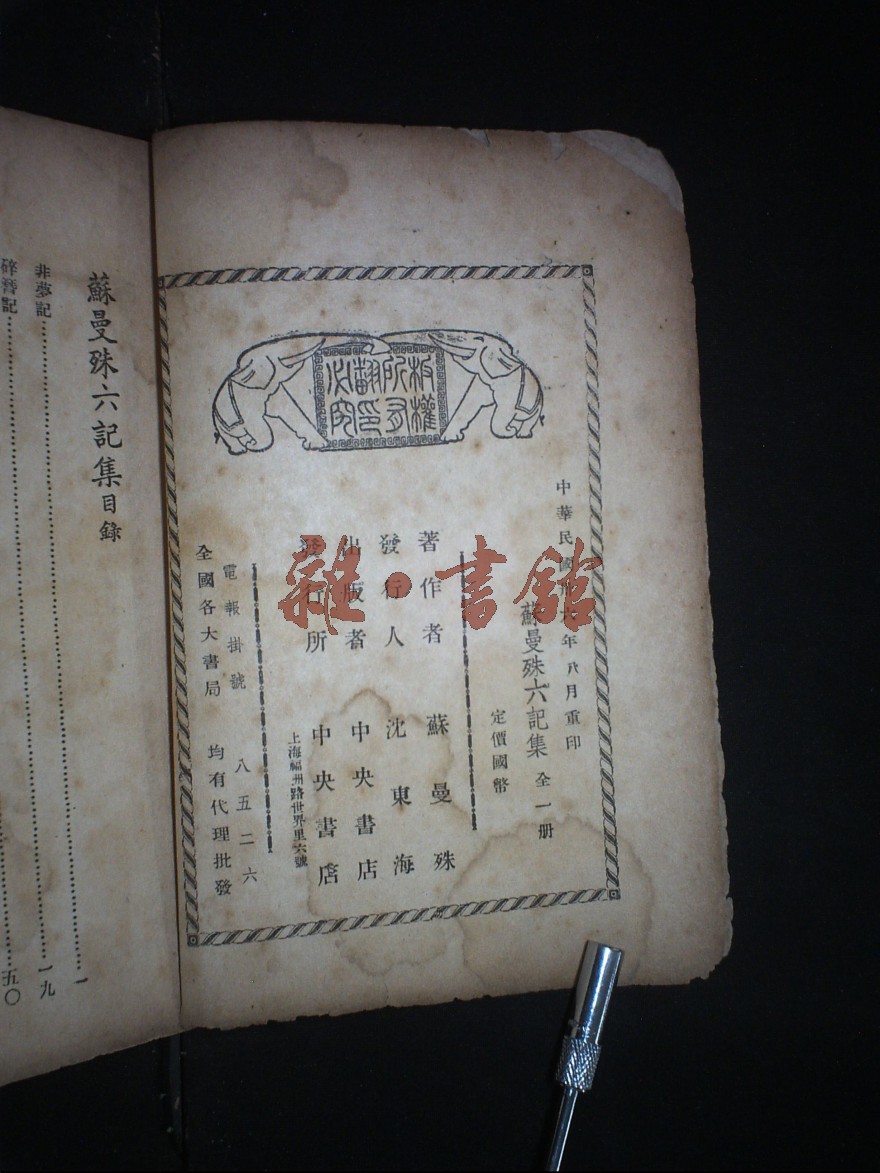 板權
所有
翻印
必究
中華民國卅六年八月重印
蘇曼殊六記集 全一册
定價國幣
著作者 蘇曼殊
發行人 沈東海
出版者 中央書店
發行所 中央書店
上海福州路世界里六號
電報掛號 八五二六
全國各大書局 均有代理批發
雜·書館
蘇曼殊六記集目錄
一
非夢記………一九
碎簪記………五〇